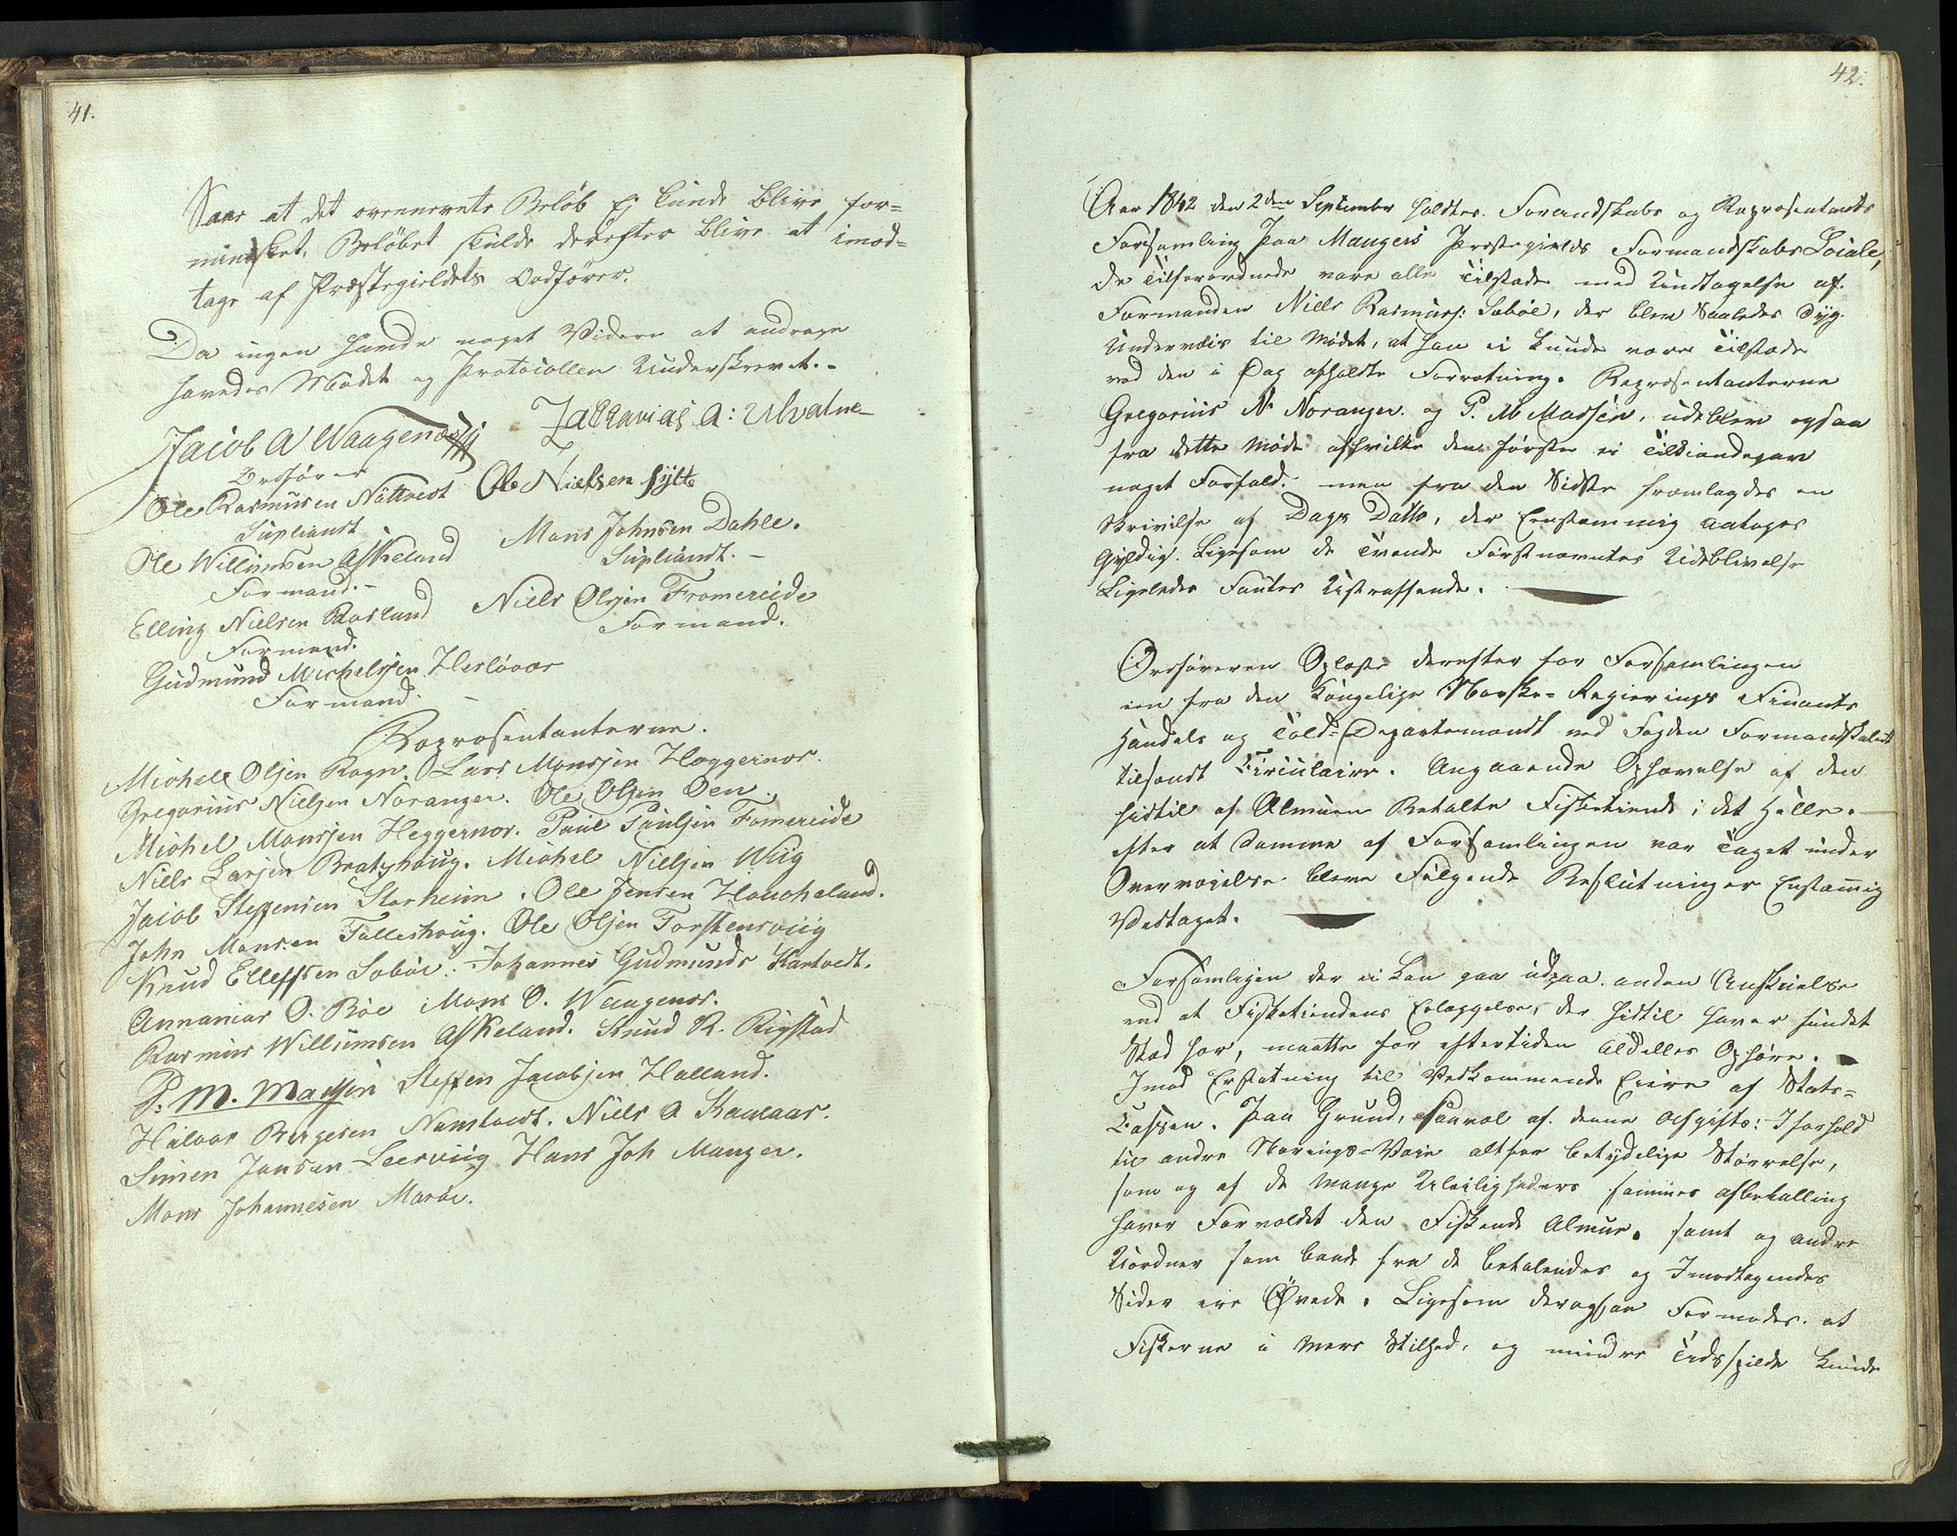 41.
Saae at det ovennevnte Beløb Ej kunde blive for=
mindsket, Beløbet skulde derefter blive at imod=
tage af Præstegieldets Ordfører.
Da ingen havde noget Videre at andrage
hævedes Mødet og Protocollen Underskrevet.-
Jacob A Waagenes
Zacharias A: Ulvatne
Ordfører
Ole Rasmusen Nøttvedt
Ole Nielsen Sylte
Supliandt
Mons Johnsen Dahle.
Ole Willumsen Askeland
Supliandt.-
Formand.-
Niels Olsen Fromereide
Elling Nielsen Rosland
Formand.
Formand.
Gudmund Michelsen Herløvær
Formand
Repræsentanterne.
Michell Olsen Rogn. Lars Monssen Heggernes.
Gregorius Nielsen Noranger. Ole Olsen Oen.
Michel Monssen Heggernes. Paul Paulsen Fromereide
Niells Larsen Bratshoug. Michel Nielsen Wiig
Jacob Steffensen Storheim. Ole Jensen Haucheland.
John Monsen Tulleshoug. Ole Olsen Torstensviig
Knud Elleffsen Sobøe. Johannes Gudmunds Kartvedt.
Annanias O. Bøe Mons O. Waagenes.
Rasmus Willumsen Askeland. Knud R. Rigstad
P. M. Madsen Steffen Jacobsen Halland.
Halvor Børgesen Namtvedt. Niels A Skaclaas.
Simen Jansen Leerviig Hans Joh Manger.
Mons Johannesen Marøe.
42.
Aar 1842 den 2den September holdtes Formandskabs og Repræsentants
Forsamling paa Mangers Præstegields Formandskabs Locale,
De Tilforordnede vare alle Tilstæde med Undtagelse af
Formanden Niells Rasmuss: Sobøe, der blev Saaledes Syg
Underveis til Mødet, at han ei kunde være Tilstæde
ved den i Dag afholdte Forretning. Repræsentanterne
Gregorius N. Noranger. og P. M Madsen, udeblev ogsaa
fra dette Møde afhvilke den første ei Tilkiendegav
noget Forfald. men fra den Sidste fremlagdes en
Skrivelse af Dags Datto, der Eenstemmig antoges
Gyldig. Ligesom de Tvende Førstnævntes Udeblivelse
Ligeledes Fantes Ustraffende.
Ordføreren Oplæste derefter for Forsamlingen
een fra den Kongelige Norske-Regierings Finants
Handels og Told-Departemendt ved Fogden Formandskabet
tilsendt Circulaire. Angaaende Ophævelse af den
hidtil af Almuen Betalte Fisketiende i det Helle.
efter at Samme af Forsamlingen var Taget under
Overveielse bleve Følgende Beslutninger Enstemig
Vedtaget.
Forsamligen der ei kan gaa udpaa anden Anskuelse
end at Fisketiendens Erlæggelse, der hidtil haver fundet
Sted her, maatte for eftertiden Aldelles Ophøre.
Imod Erstatning til Vedkommende Eiere af Stats=
Cassen. Paa Grund, saavel af denne Afgifts: I forhold
til andre Nærings-Veie altfor betydelige Størrelse,
som og af de Mange Uleiligheders sammes afbetalling
haver Forvoldt den Fiskende Almue. samt og andre
Uordner som baade fra de betalendes og Imodtagendes
Sider ere Øvede. Ligesom derogsaa Formodes at
Fiskerne i Mere Stilhed, og mindre Tidsspilde kunde